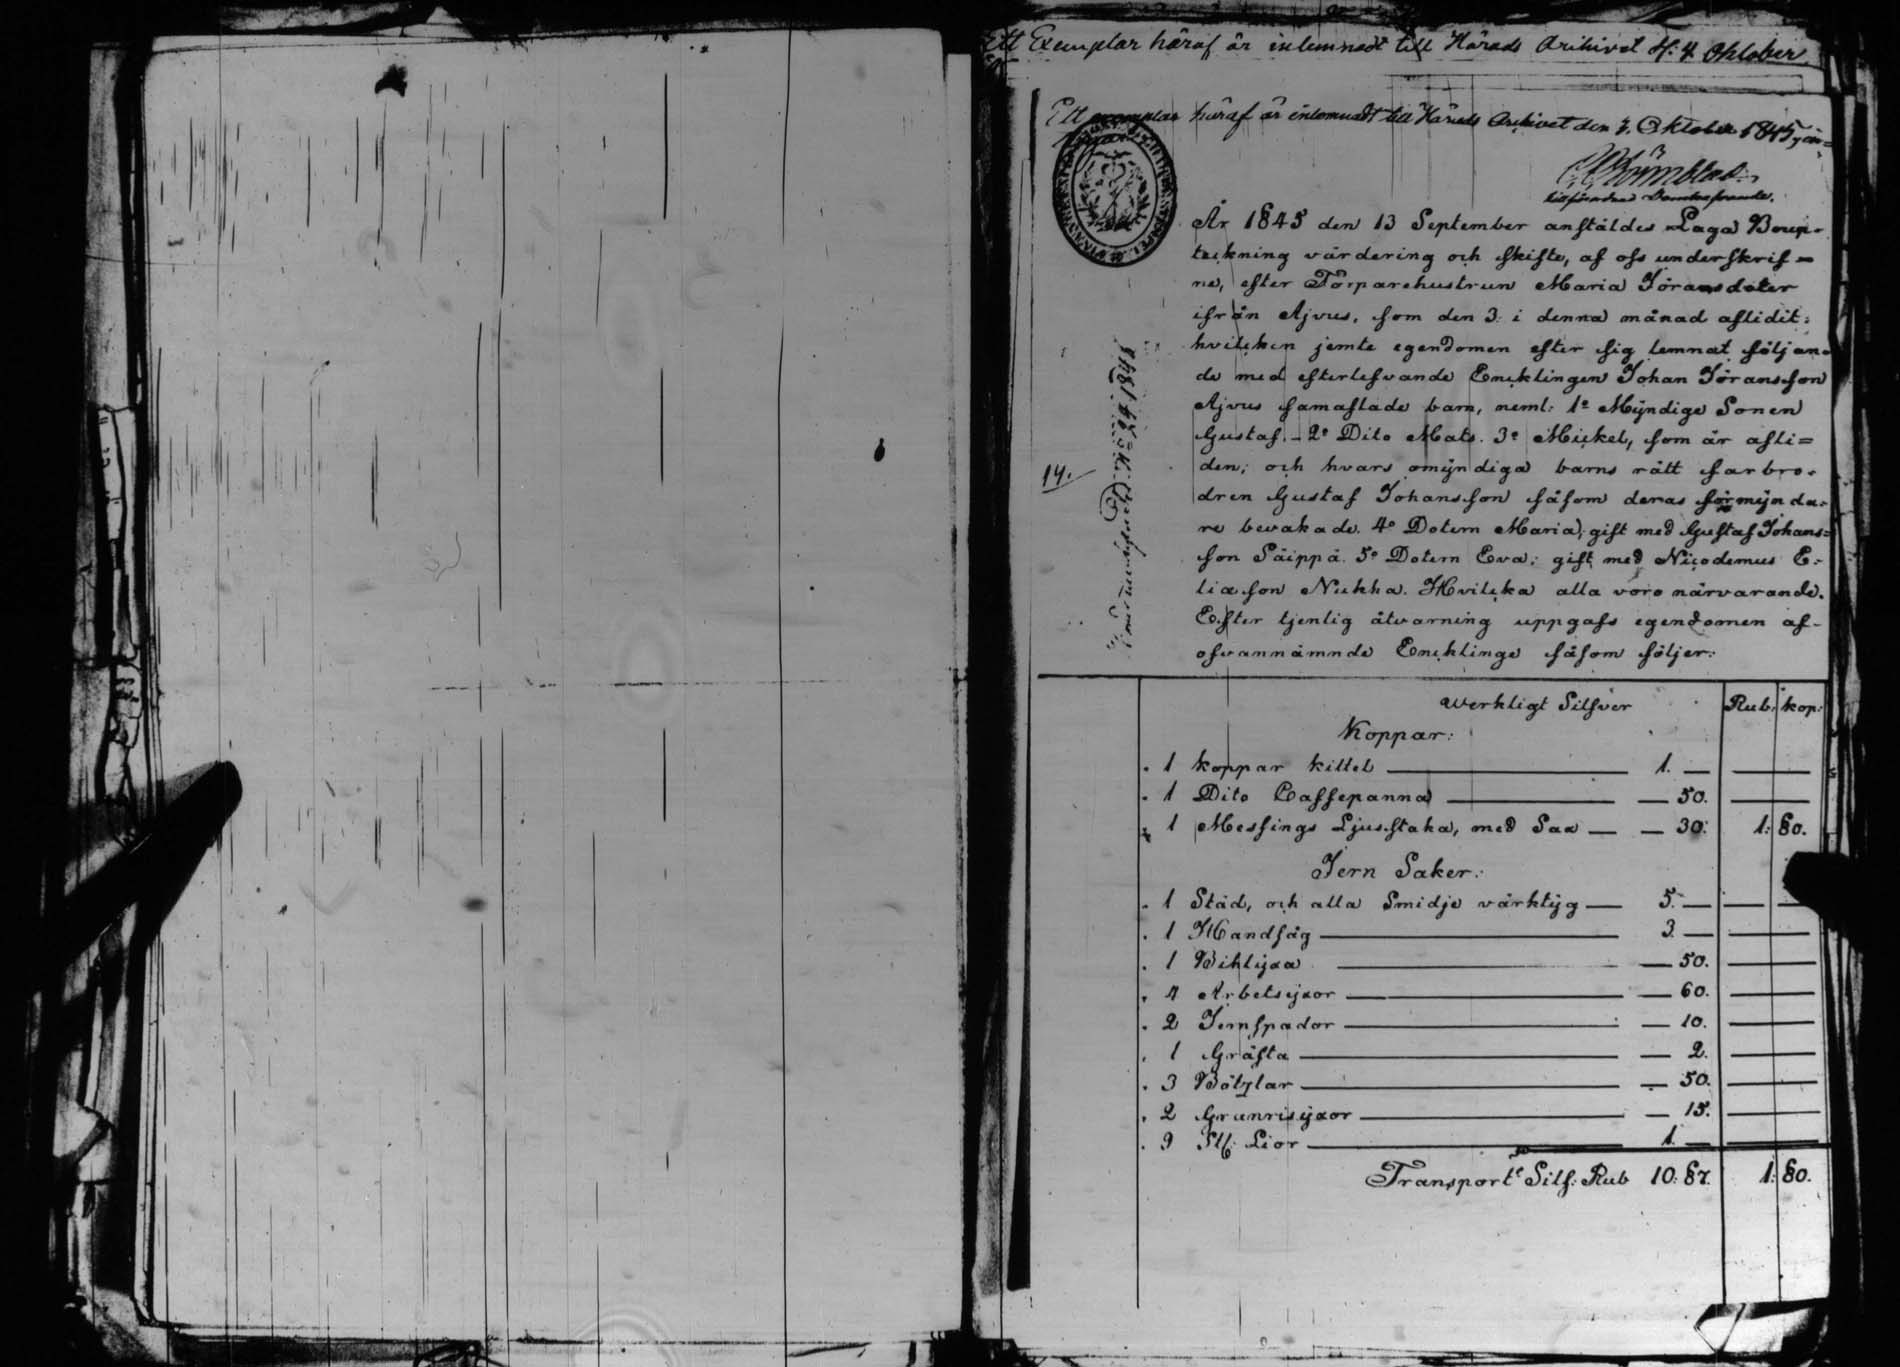 Ett Exemplar häraf är inlemnadt till Härads Arkivet d: 4 Oktober
Ett exemplar häraf är inlemnadt till Härads Arkivet den 4. Oktober 1845,
Domhafvande.
År 1845 den 13 September anstäldes Laga Boup-
teckning värdering och skifte, af oss underskrif=
ne, efter Torparehustrun Maria Jöransdoter
ifrån Ajvus, som den 3: i denna månad aflidit:
hvilcken jemte egendomen efter sig lemnat följan-
de med efterlefvande Encklingen Johan Jöransson
Ajvus samaflade barn, neml: 1o Myndige Sonen
Gustaf. - 2o Dito Mats. 3o Mickel, som är afli=
den; och hvars omyndiga barns rätt farbro-
dren Gustaf Johansson såsom deras förmynda-
re bevakade. 4o Dotern Maria; gift med Gustaf Johans=
son Säippä. 5o Dotern Eva; gift med Nicodemus E-
liasson Nukha. Hvilcka alla voro närvarande.
Efter tjenlig åtvarning uppgafs egendomen af-
ofvannämnde Encklinge såsom följer:
14.
Werkligt Silfver Rub: kop:
Koppar:
1 koppar kittel 1. —
1 Dito Caffepanna — 50.
1 Messings Ljusstaka, med Sax — 30: 1: 80.
Jern Saker:
1 Städ, och alla Smidje värktyg 5. —
1 Handsåg 3. —
1 Bihlyxa — 50.
4 Arbetsyxor — 60.
2 Jernspador — 10.
1 Gräfta — 2.
3 Bötzlar — 50.
2 Granrisyxor — 15.
9 St: Lior 1. —
Transport Silf: Rub 10: 87. 1: 80.